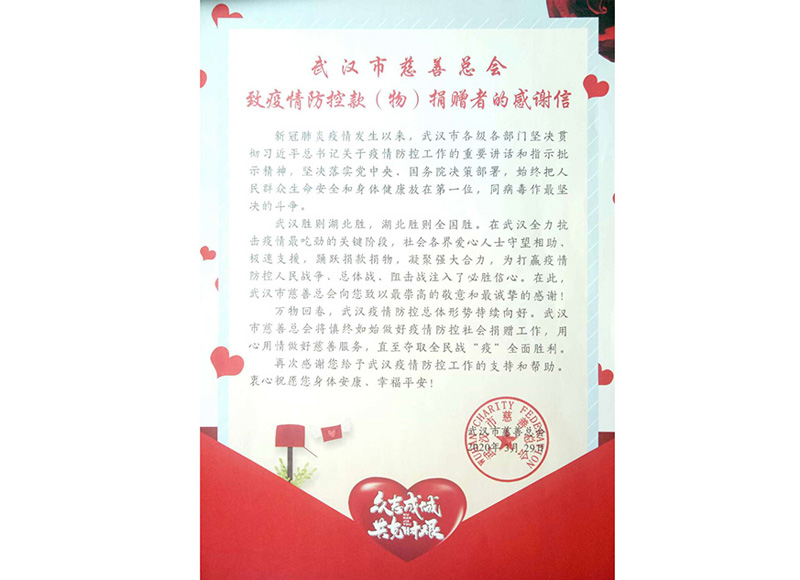 武汉市慈善总会
致疫情防控款（物）捐赠者的感谢信
新冠肺炎疫情发生以来，武汉市各级各部门坚决贯
彻习近平总书记关于疫情防控工作的重要讲话和指示批
示精神，坚决落实党中央、国务院决策部署，始终把人
民群众生命安全和身体健康放在第一位，同病毒作最坚
决的斗争。
武汉胜则湖北胜，湖北胜则全国胜。在武汉全力抗
击疫情最吃劲的关键阶段，社会各界爱心人士守望相助、
极速支援，踊跃捐款捐物，凝聚强大合力，为打赢疫情
防控人民战争、总体战、阻击战注入了必胜信心。在此，
武汉市慈善总会向您致以最崇高的敬意和最诚挚的感谢！
万物回春，武汉疫情防控总体形势持续向好。武汉
市慈善总会将慎终如始做好疫情防控社会捐赠工作，用
心用情做好慈善服务，直至夺取全民战“疫”全面胜利。
再次感谢您给予武汉疫情防控工作的支持和帮助。
衷心祝愿您身体安康、幸福平安！
WUHAN CHARITY FEDERATION
武汉市慈善总会
武汉市慈善总会
2020年3月29日
众志成城
共克时艰